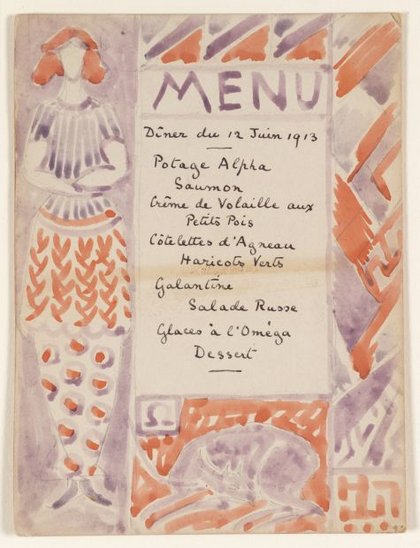 MENU
Dîner du 12 Juin 1913
Potage Alpha
Saumon
Crême de Volaille aux
Petits Pois
Côtelettes d'Agneau
Haricots Verts
Galantine
Salade Russe
Glaces à l'Oméga
Dessert
Ω